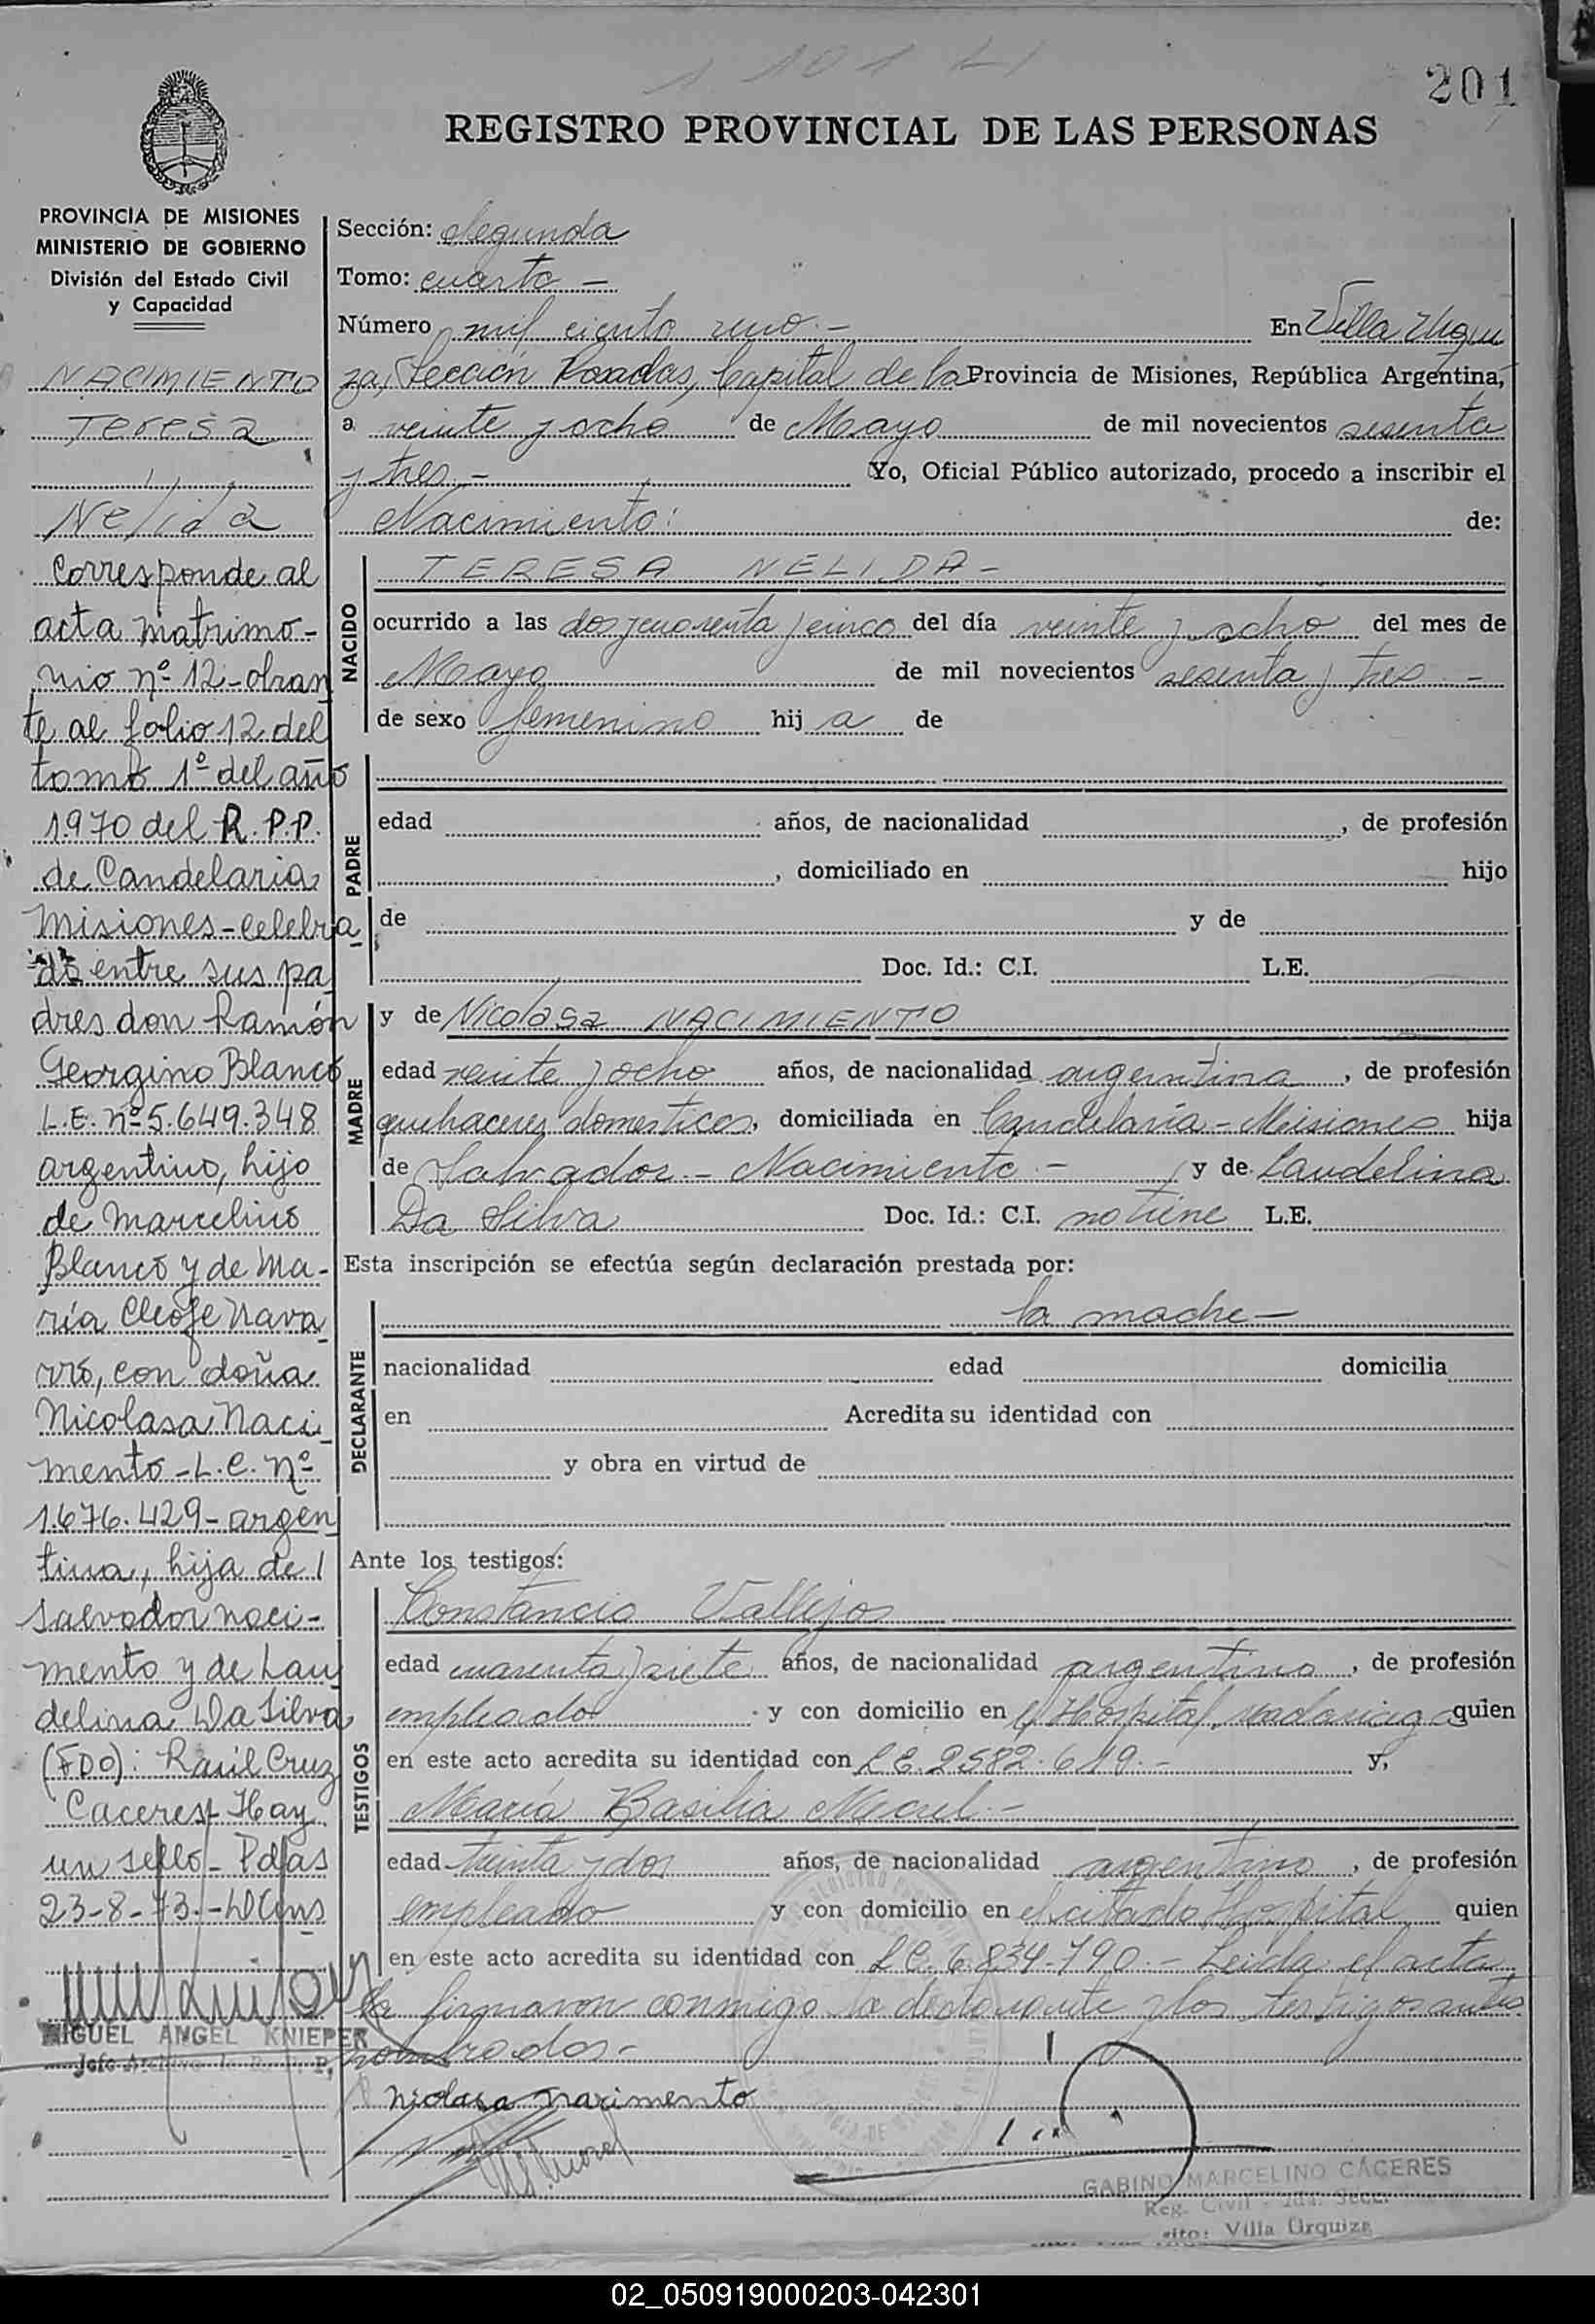 201
REGISTRO PROVINCIAL DE LAS PERSONAS
PROVINCIA DE MISIONES
MINISTERIO DE GOBIERNO
División del Estado Civil
y Capacidad
NACIMIENTO
Teresa
Nelida
Corresponde al
acta matrimo-
nio nº 12 - obran
te al folio 12 del
tomo 1º del año
1970 del R.P.P.
de Candelaria
Misiones - celebra
do entre sus pa
dres don Ramón
Georgino Blanco
L.E. nº 5.649.348
argentino, hijo
de Marcelino
Blanco y de Ma-
ría Cleofe Nava
rro, con doña
Nicolasa Naci
mento - L.C. nº
1.676.429 - argen
tina, hija de
Salvador naci-
mento y de Lau
delina Da Silva
(FDO): Raúl Cruz
Caceres - Hay
un sello - Pdas
23-8-73.-
MIGUEL ANGEL KNIEPER
Sección: Segunda
Tomo: cuarto -
Número mil ciento uno.- En Villa Urqui
za, Sección Posadas, Capital de la Provincia de Misiones, República Argentina,
a veinte y ocho de Mayo de mil novecientos sesenta
y tres.- Yo, Oficial Público autorizado, procedo a inscribir el
Nacimiento: de:
NACIDO
TERESA NELIDA -
ocurrido a las dos y cuarenta y cinco del día veinte y ocho del mes de
Mayo de mil novecientos sesenta y tres -
de sexo femenino hij a de
PADRE
edad años, de nacionalidad , de profesión
, domiciliado en hijo
de y de
Doc. Id.: C.I. L.E.
MADRE
y de Nicolasa NACIMIENTO
edad veinte y ocho años, de nacionalidad argentina, de profesión
quehaceres domesticos, domiciliada en Candelaria - Misiones hija
de Salvador - Nacimiento - y de Laudelina
Da Silva Doc. Id.: C.I. no tiene L.E.
Esta inscripción se efectúa según declaración prestada por:
DECLARANTE
la madre -
nacionalidad edad domicilia
en Acredita su identidad con
y obra en virtud de
Ante los testigos:
TESTIGOS
Constancio Vallejos
edad cuarenta y siete años, de nacionalidad argentino, de profesión
empleado y con domicilio en el Hospital Madariaga quien
en este acto acredita su identidad con L.E. 2582.619.- y,
Maria Basilia
edad treinta y dos años, de nacionalidad argentino, de profesión
empleado y con domicilio en el citado Hospital quien
en este acto acredita su identidad con L.C. 6.834.790.- Leida el acta
la firmaron conmigo la declarante y los testigos antes
nombrados.-
nicolasa nacimento
GABINO MARCELINO CÁCERES
Reg. Civil - 2da. Secc.
Villa Urquiza
02_050919000203-042301